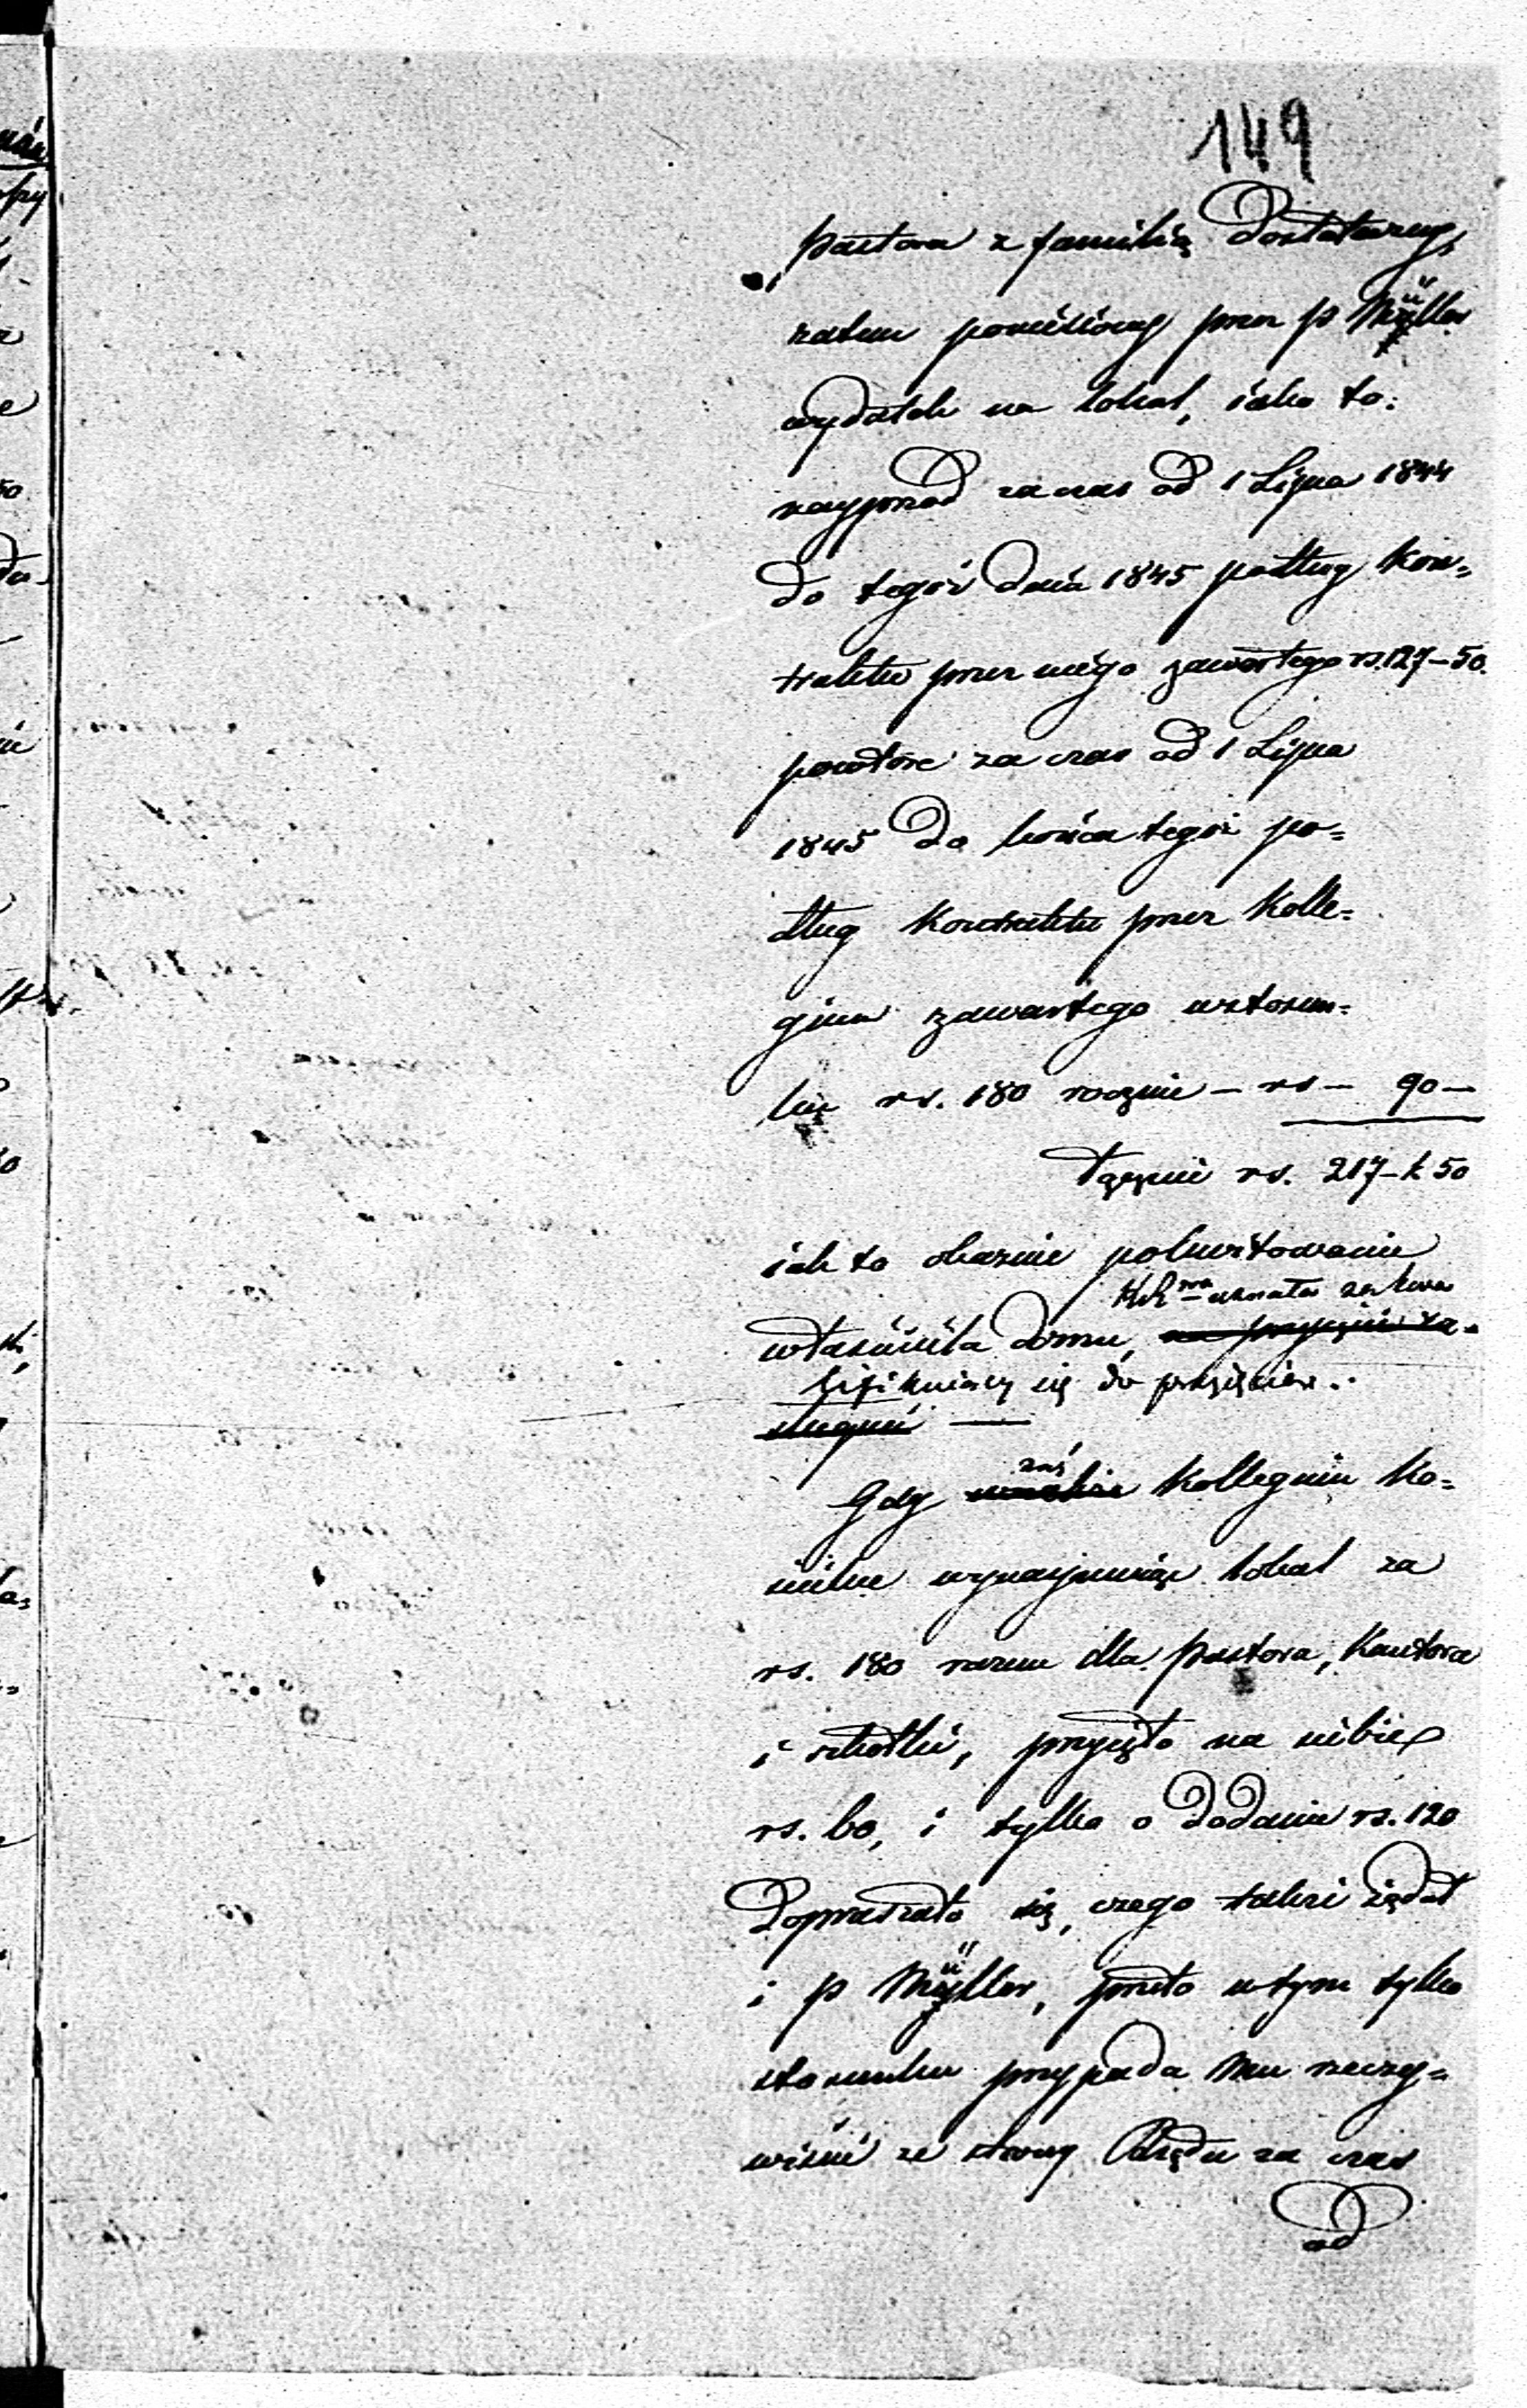 149
pastora z familią Dostateczny,
zatem poniesiony przez p Müller
wydatek na lokal, iako to:
nayprzod za czas od 1 Lipca 1844
do tegoż dnia 1845 podług kon=
traktu przez niego zawartego rs. 127-50.
powtóre za czas od 1 Lipca
1845 do końca tegoż po=
dług Kontraktu przez Kolle=
gium zawartego w stosun=
ku rs. 180 rocznie - rs - 90-
Łącznie rs. 217-k 50
iak to okazuie pokwitowanie
uznała za kwa
właściciela domu, na przyjęcie za=
lifikuiący się do przyięcia.
sługuie —
Gdy zaś Kollegium Ko=
ścielne wynaymuiąc lokal za
rs. 180 razem dla pastora, Kantora
i szkółki, przyięło na siebie
rs. 60, i tylko o Dodanie rs. 120
Dopraszało się, czego także żądał
i p Müller, przeto w tym tylko
stosunku przypada mu rzeczy=
wiście ze strony Rządu za czas
od